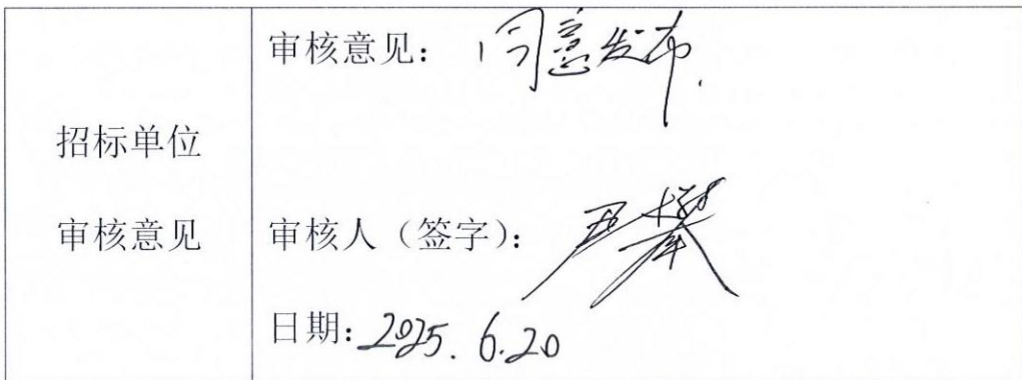 招标单位
审核意见
审核意见：同意发布.
审核人（签字）：
日期：2025.6.20